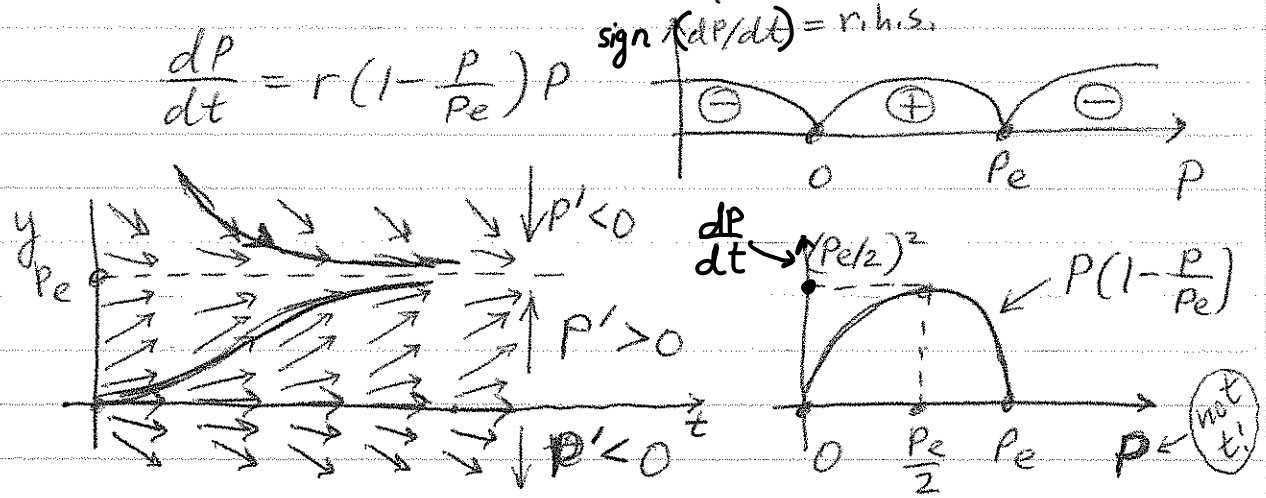 dP/dt = r(1 - P/Pe)P
sign (dP/dt) = r.h.s.
⊖ ⊕ ⊖
0 Pe P
y
Pe
P' < 0
P' > 0
t
P' < 0
dP/dt
(Pe/2)²
P(1 - P/Pe)
0 Pe/2 Pe P
not
t!